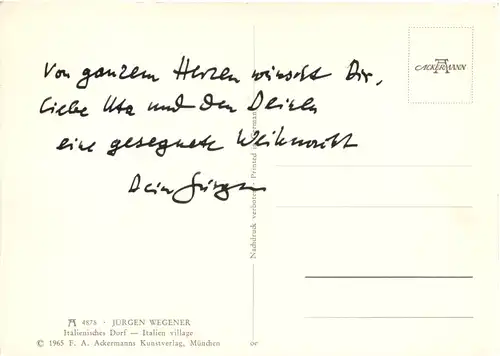 Von ganzem Herzen wünscht Dir,
liebe Uta und den Deinen
eine gesegnete Weihnacht
Dein Jürgen
ACKERMANN
Nachdruck verboten · Printed
4878 · JÜRGEN WEGENER
Italienisches Dorf — Italien village
© 1965 F. A. Ackermanns Kunstverlag, München